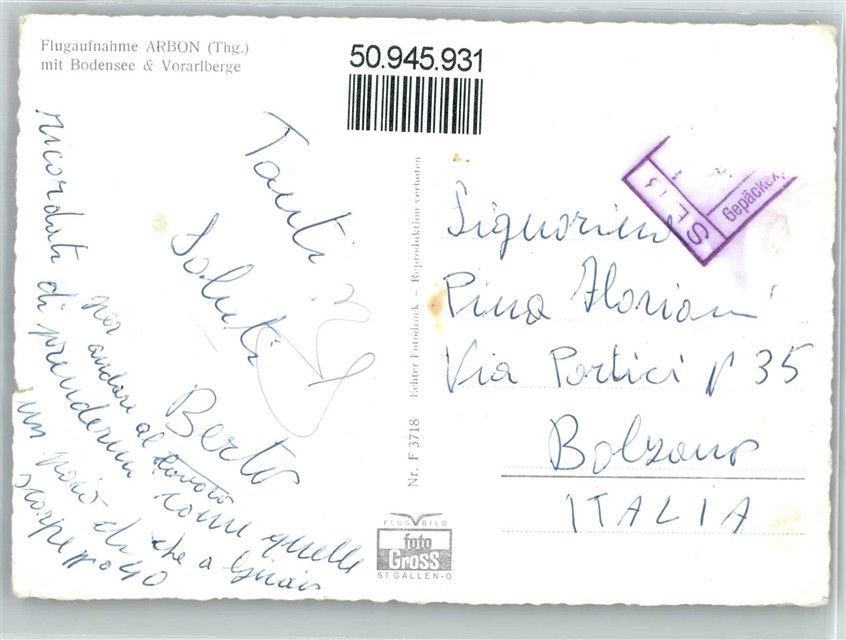 Flugaufnahme ARBON (Thg.)
mit Bodensee & Vorarlberge
50.945.931
Tanti
Saluti
Berto
ricordati di prendermi
un paio di
come quelle
che a
per andare al lavoro
40
Nr. F 3718 Echter Fotodruck – Reproduktion verboten
FLUG BILD
foto
GROSS
ST. GALLEN-O
Gepäckex
Signorina
Pina Floriani
Via Portici N 35
Bolzano
ITALIA